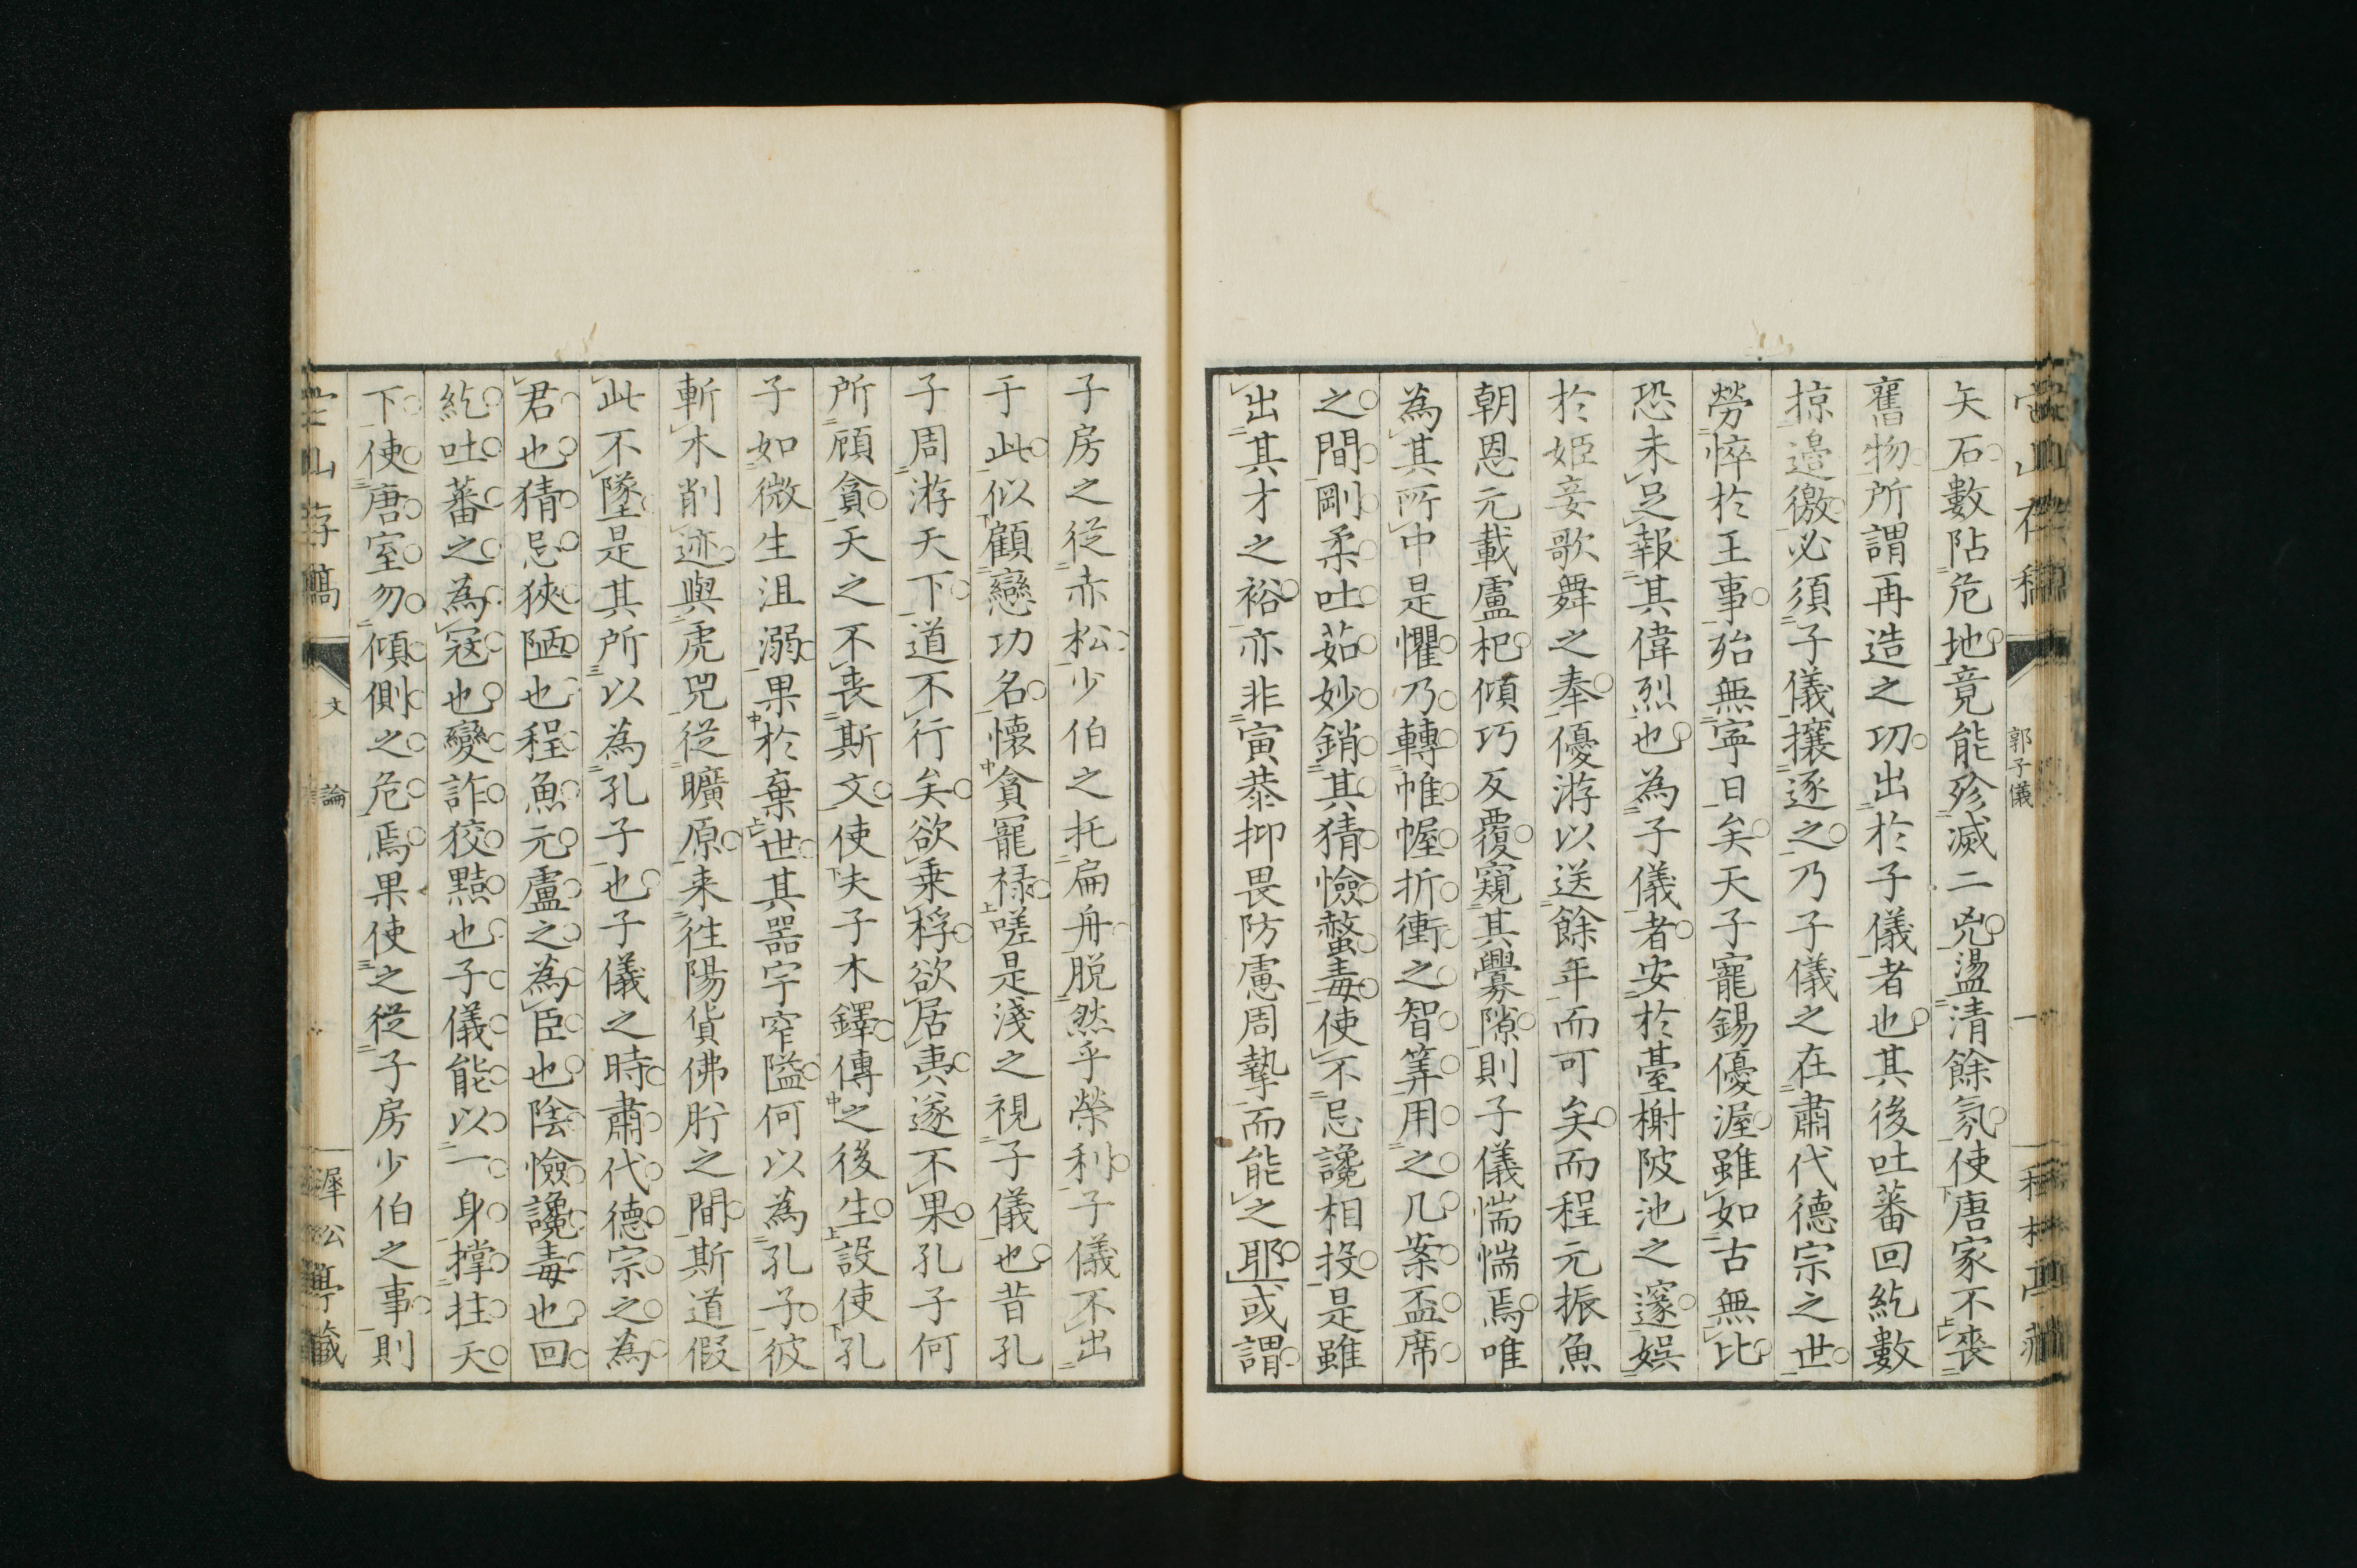 郭子儀
矢石數阽危地竟能殄滅二兇盪清餘氛使唐家不喪
舊物所謂再造之功出於子儀者也其後吐蕃回紇數
掠邉徼必須子儀攘逐之乃子儀之在肅代德宗之世
勞悴於王事殆無寧日矣天子寵錫優渥雖如古無比
恐未足報其偉烈也為子儀者安於臺榭陂池之邃娛
於姬妾歌舞之奉優游以送餘年而可矣而程元振魚
朝恩元載盧杞傾巧反覆窺其釁隙則子儀惴惴焉唯
為其所中是懼乃轉帷幄折衝之智筭用之几案盃席
之間剛柔吐茹妙銷其猜憸螫毒使不忌讒相投是雖
出其才之裕亦非寅恭抑畏防慮周摯而能之耶或謂
子房之從赤松少伯之托扁舟脫然乎榮利子儀不出
于此似顧戀功名懷貪寵祿嗟是淺之視子儀也昔孔
子周游天下道不行矣欲乗桴欲居夷遂不果孔子何
所顧貪天之不喪斯文使夫子木鐸傳之後生設使孔
子如微生沮溺果於棄世其噐宇窄隘何以為孔子彼
斬木削迹與虎兕從曠原来往陽貨佛肸之間斯道假
此不墜是其所以為孔子也子儀之時肅代德宗之為
君也猜忌狹陋也程魚元盧之為臣也陰憸讒毒也回
紇吐蕃之為寇也變詐狡黠也子儀能以一身撐拄天
下使唐室勿傾側之危焉果使之從子房少伯之事則
文論